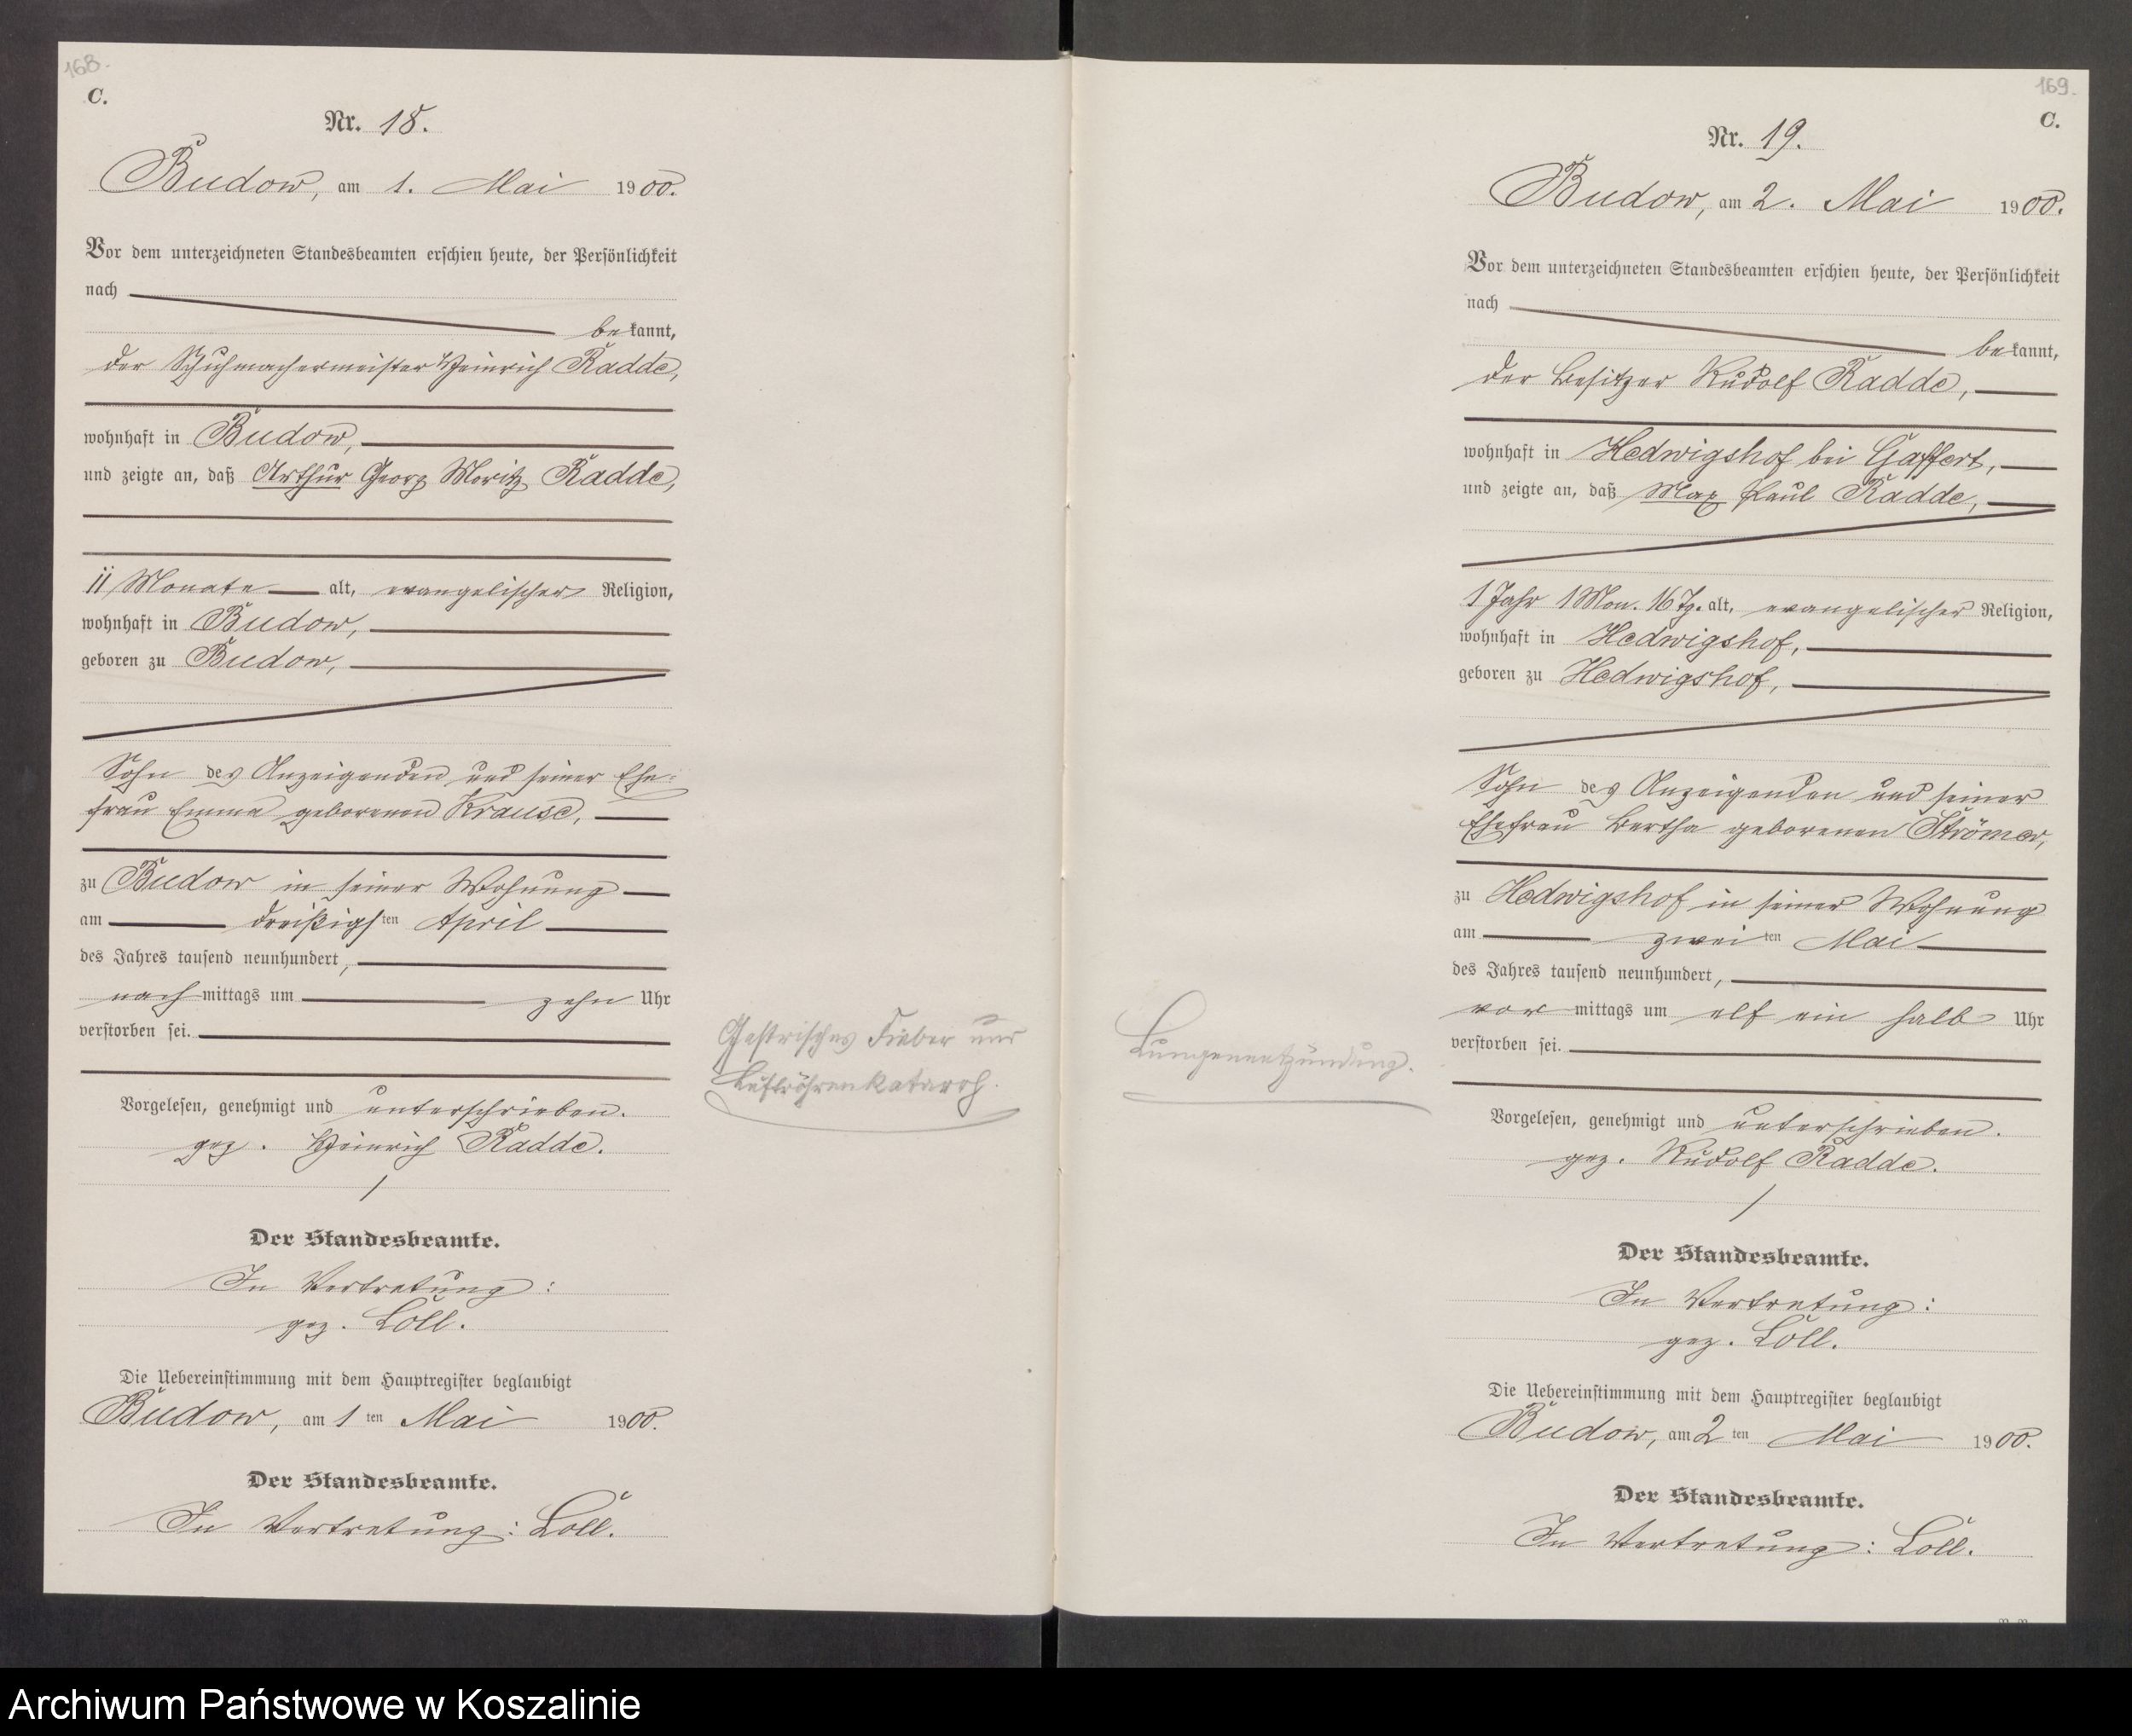 168.
C.
Nr. 18.
Budow, am 1. Mai 1900.
Vor dem unterzeichneten Standesbeamten erschien heute, der Persönlichkeit
nach
bekannt,
der Schuhmachermeister Heinrich Radde,
wohnhaft in Budow,
und zeigte an, daß Arthur Georg Moritz Radde,
11 Monate alt, evangelischer Religion,
wohnhaft in Budow,
geboren zu Budow,
Sohn des Anzeigenden und seiner Ehe-
frau Emma geborenen Krause,
zu Budow in seiner Wohnung
am dreißigsten April
des Jahres tausend neunhundert,
nachmittags um zehn Uhr
verstorben sei.
Vorgelesen, genehmigt und unterschrieben.
gez. Heinrich Radde.
Der Standesbeamte.
In Vertretung:
gez. Löll.
Die Uebereinstimmung mit dem Hauptregister beglaubigt
Budow, am 1ten Mai 1900.
Der Standesbeamte.
In Vertretung: Löll.
Gastrisches Fieber und
Luftröhrenkatarrh.
169.
C.
Nr. 19.
Budow, am 2. Mai 1900.
Vor dem unterzeichneten Standesbeamten erschien heute, der Persönlichkeit
nach
bekannt,
der Besitzer Rudolf Radde,
wohnhaft in Hedwigshof bei Gaffert,
und zeigte an, daß Max Paul Radde,
1 Jahr 1 Mon. 16 Tg. alt, evangelischer Religion,
wohnhaft in Hedwigshof,
geboren zu Hedwigshof,
Sohn des Anzeigenden und seiner
Ehefrau Bertha geborenen Strömer,
zu Hedwigshof in seiner Wohnung
am zweiten Mai
des Jahres tausend neunhundert,
vormittags um elf ein halb Uhr
verstorben sei.
Lungenentzündung.
Vorgelesen, genehmigt und unterschrieben.
gez. Rudolf Radde.
Der Standesbeamte.
In Vertretung:
gez. Löll.
Die Uebereinstimmung mit dem Hauptregister beglaubigt
Budow, am 2ten Mai 1900.
Der Standesbeamte.
In Vertretung: Löll.
Archiwum Państwowe w Koszalinie